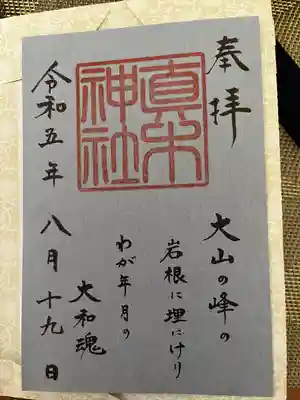 奉拝
真木神社
大山の峰の
岩根に埋にけり
わが年月の
大和魂
令和五年 八月十九日